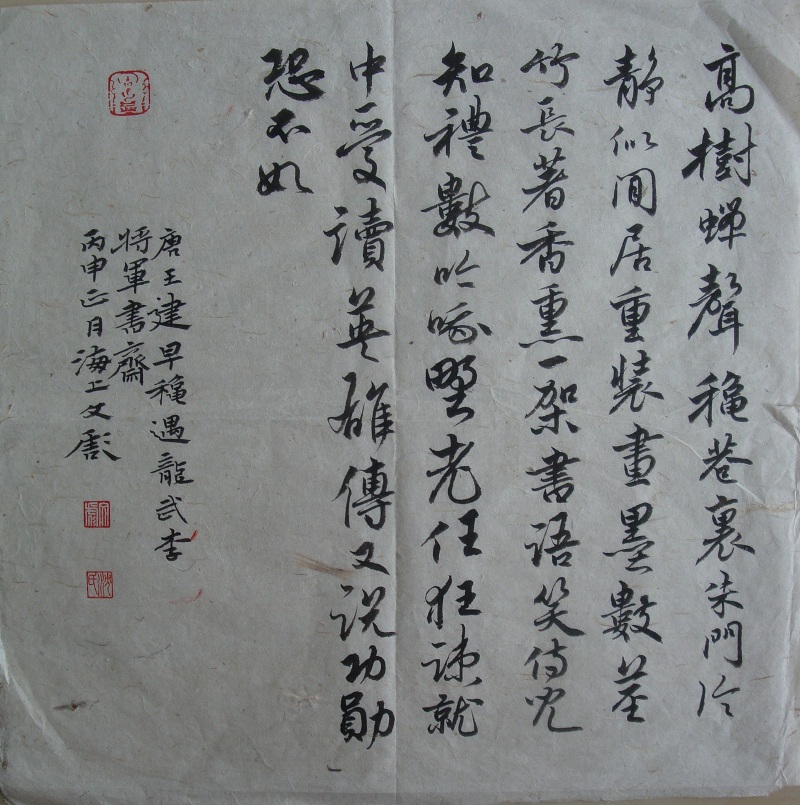 髙樹蟬聲穐巷裏朱門冷
静似閒居重裝畫墨數莖
竹長著香熏一架書語笑侍兒
知禮數吟哦野老任狂疎就
中愛讀英雄傳又説功勛
恐不如
唐王建早穐遇龍武李
将軍書齋
丙申正月海上文彪